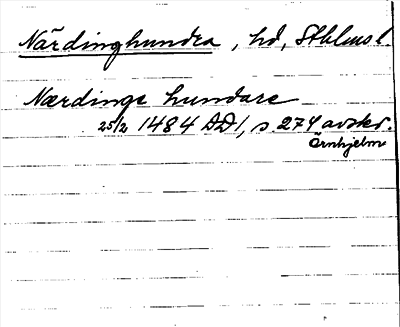 Närdinghundra, hd, Sthlms l.
Nærdinge hundare
25/2 1484 DD1, s 274 avskr.
Örnhjelm